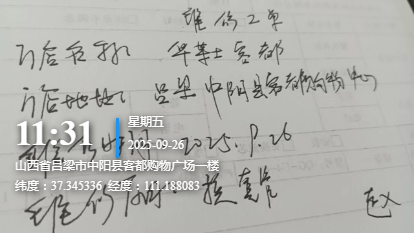 维修工单
门店名称 华莱士客都
门店地址 吕梁中阳县客都购物中心
11:31
星期五
2025-09-26
2025.9.26
山西省吕梁市中阳县客都购物广场一楼
纬度：37.345336 经度：111.188083
维修
赵